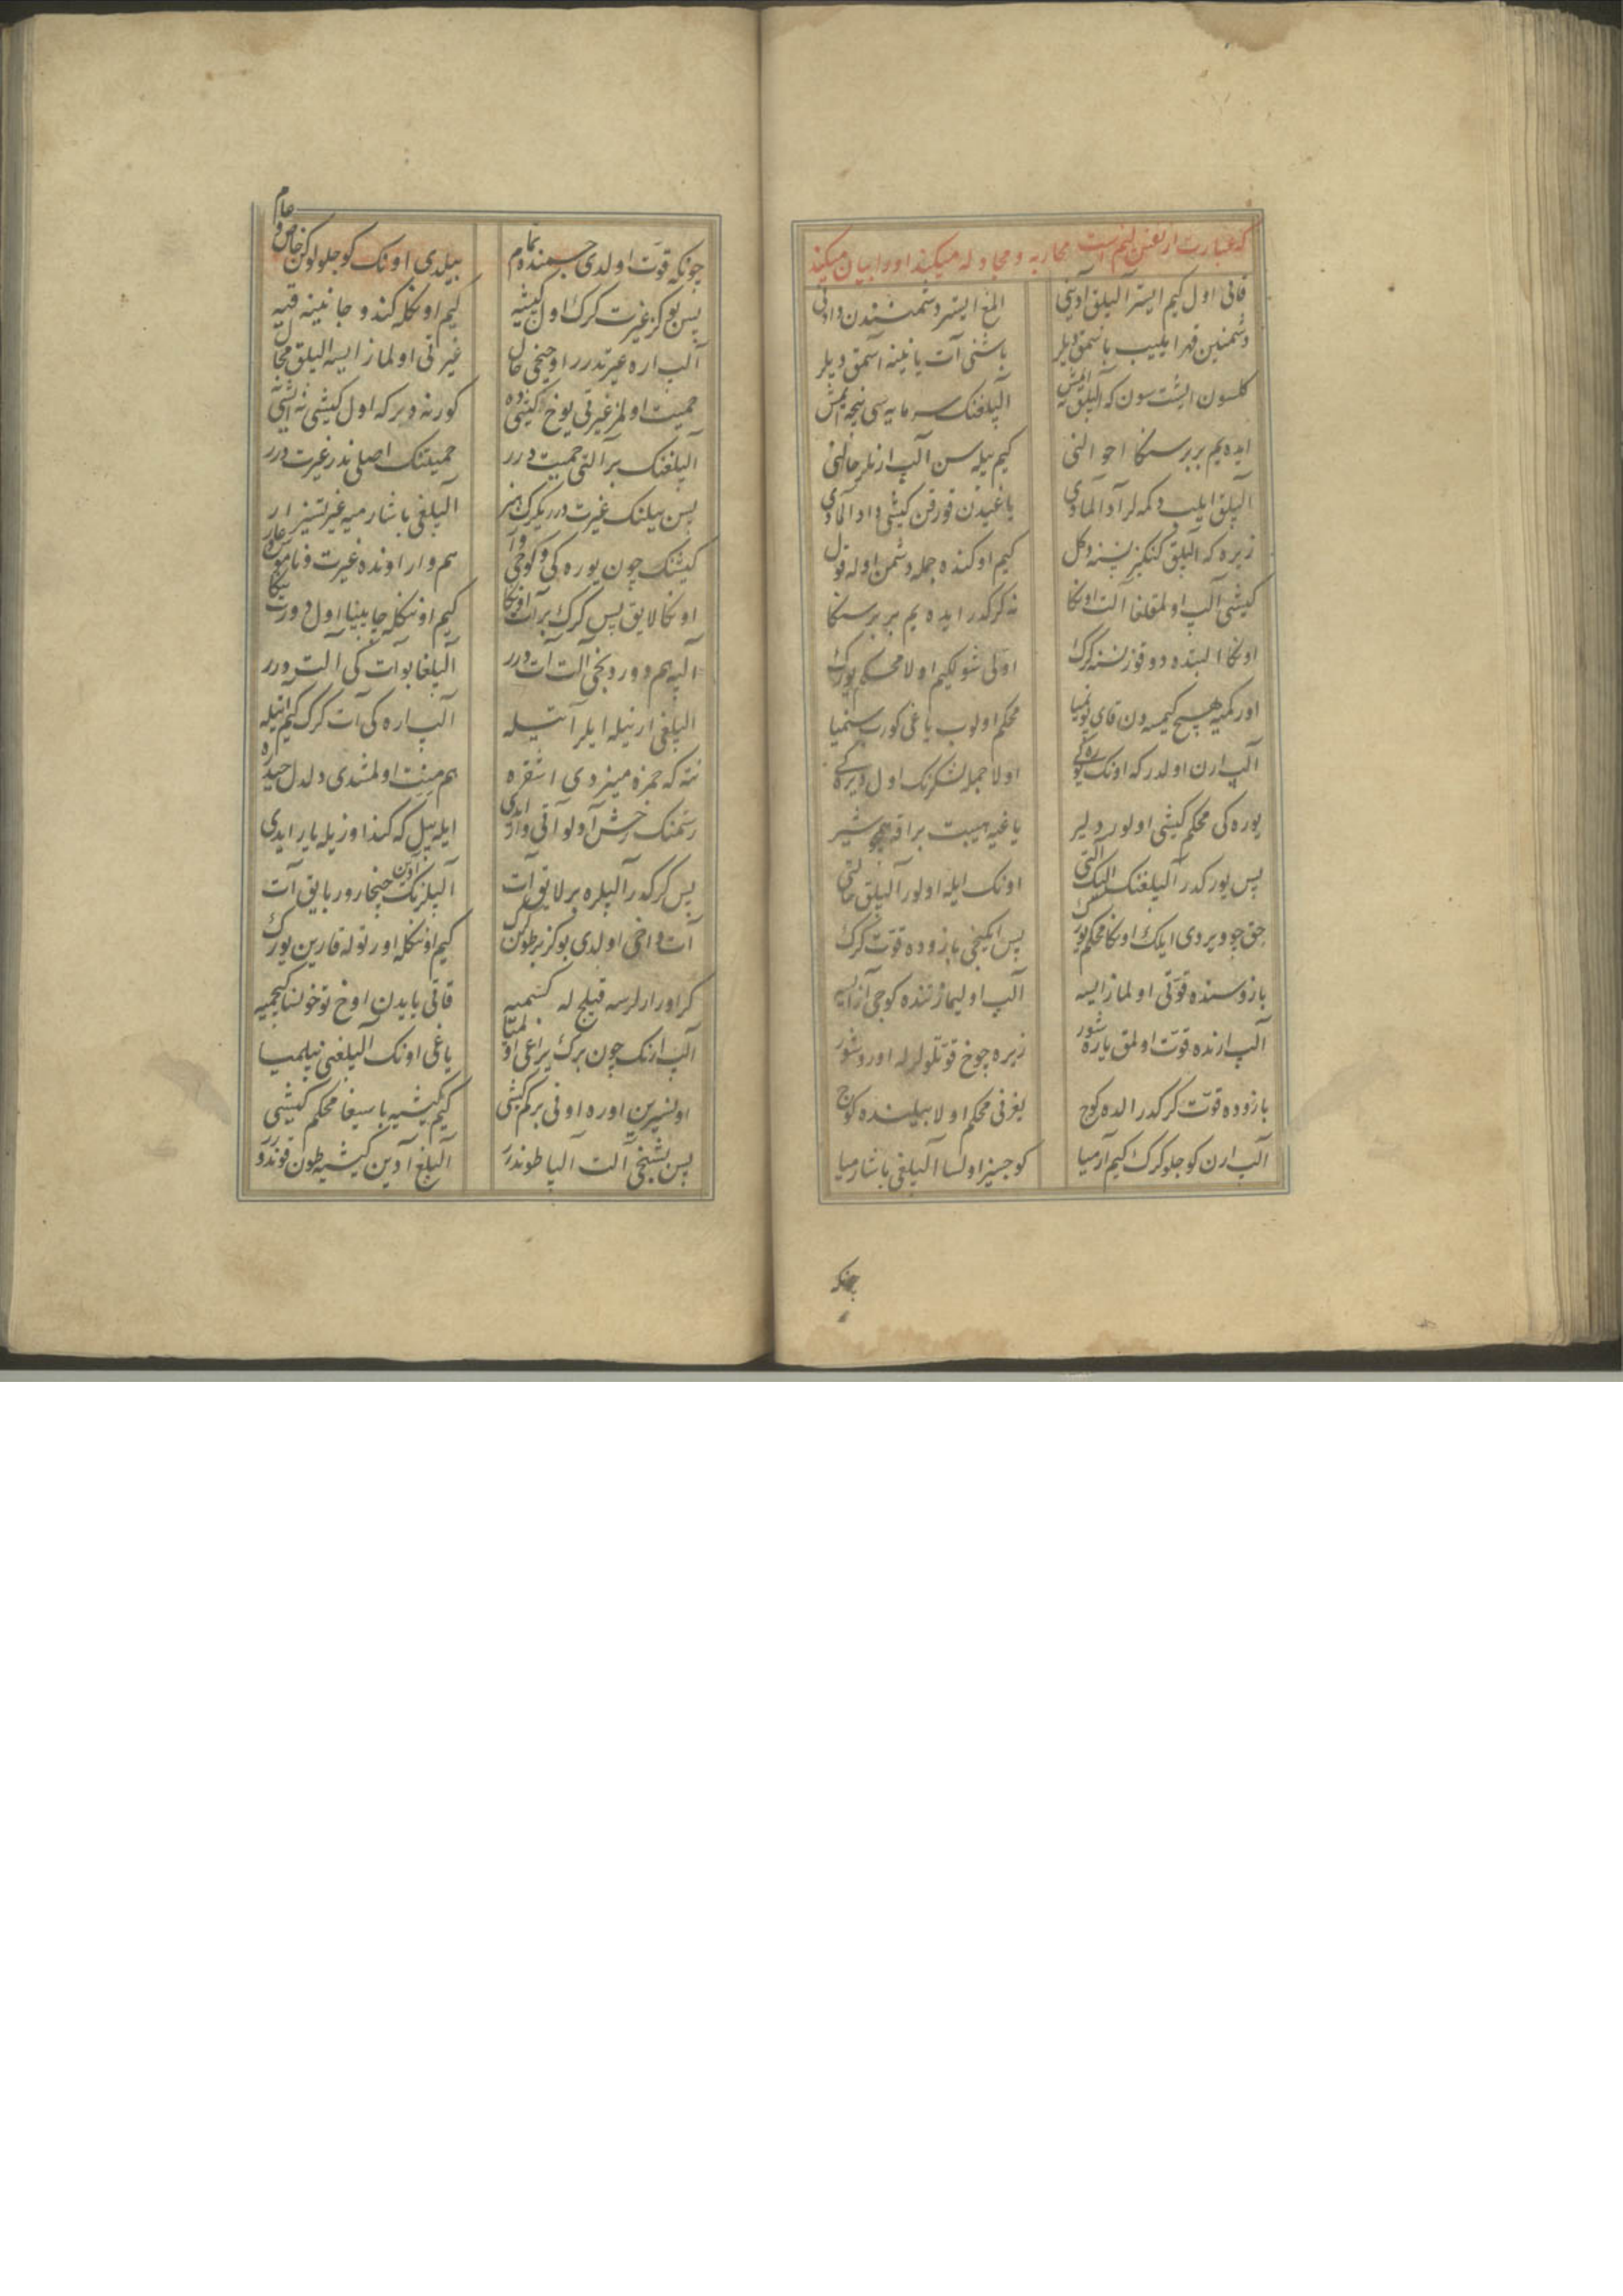 که عبارت از نفس لیم است محاربه و مجادله میکنند او را بیان میکند
قانی اول کیم ایستر آلپلق آدینی المغ ایستر دشمنندن دادنی
دشمنین قهر ایلییب باصمق دیلر باشنی آت یانینه آصمق دیلر
کلسون ایشت سون که آلپلق نه ایمش آلپلغنک سرمایه سی نیجه ایمش
ایده یم بر بر سنکا احوالنی کیم بیله سن آلپ ارنلر حالنی
آلپلق ایلیب دکمه لر آد آلمادی یاغیدن قورقن کیشی داد آلمادی
زیره که آلپلق کنکیز نسنه دکل کیم اوکنده جمله دشمن اوله قول
کیشی آلپ اولمقلغا آلت اونکا نه کرکدر ایده یم بر بر سنکا
اونکا البتده دوقوز نسنه کرک اولی شولکیم اولا محکم یورک
اورکمیه هیچ کیمسه دن قای یونمیا محکم اولوب یاغی کورب سنمیا
آلپ ارن اولدر که اونک یوره کی اولا جمله لشکرنک اول دیره کی
یوره کی محکم کیشی اولور دلیر یاغیه هیبت براقه همچو شیر
پس یورکدر آلپلغنک ایلک آلتی اونک ایله اولور آلپلق حالتی
حق چو ویردی ایلک اونکا محکم یورک پس ایکنجی بازوده قوت کرک
بازوسنده قوتی اولماز ایسه آلپ اولیماز تنده کوجی از ایسه
آلپ ارنده قوت اولمق یاره شور زیره چوخ قوتلولرله اوروشور
بازوده قوت کرکدر الده کوج بغرنی محکم اولا بیلنده کوج
آلپ ارن کوجلو کرک کیم آرمیا کوجسیز اولسا آلپلغی باشارمیا
چونکه
چونکه قوت اولدی جسمنده تمام بیلدی اونک کوجلولوکن خاص و عام
پس بو کز غیرت کرک اول کیشیه کیم اونکله کندو جانینه قیه
آلپ اره غیرتدرر اوجنجی حال غیرتی اولماز ایسه آلپلق محال
حمیت اولمز غیرتی یوخ کیشیده کور نه دیر که اول کیشی نه ایشی
آلپلغنک بر آلتی حمیت درر حمیتنک اصلی ندر غیرت درر
پس بیلنک غیرت درر یکرک هنر آلپلغی باشارمیه غیرتسیز ار
کیشنک چون یوره کی و کوجی وار هم وار اونده غیرت و ناموس و عار
اونکا لایق پس کرک بر آت اونکا کیم اونکله چاپینا اول دورت ینکا
آلپه هم دوردنجی آلت آت درر آلپلغا بو آت کی آلت درر
آلپلغی ار نیله ایلر آتیله آلپ اره کی آت کرک کیم آنیله
نته که حمزه مینردی اشقره هم مینت اولمشدی دلدل حیدره
رستمنک رخش آدلو آتی وار ایدی ایله بیل که کندوزیله یار ایدی
پس کرکدر آلپلره بر لایق آت آلپلرنک آدین چیخارور بایق آت
آت داخی اولدی بو کز بر طون کرک کیم اونکله اورتوله قارین یورک
کر اورارلرسه قیلج له کسمیه قاتی یایدن اوخ توخونسا کچمیه
آلپ ارنک چون برک یراغی اولمیا یاغی اونک آلپلغنی بیلمیا
کیم کیشیه باسیغا محکم کیشی
پس بشنجی آلت آلپا طوندرر آلپلغ آدین کیشیه طون قوندرر